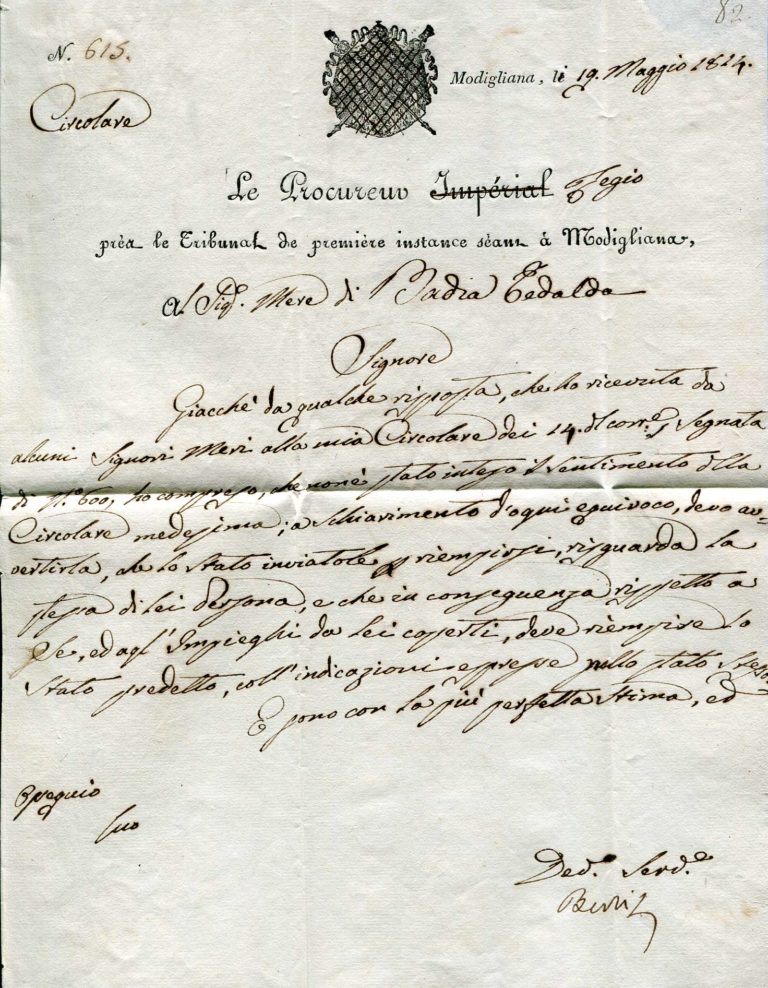 82
N. 615.
Modigliana, li 19. Maggio 1814.
Circolare
Le Procureur Impérial Regio
près le Tribunal de première instance séant à Modigliana,
Al Sig.r Mere di Badia Tedalda
Signore
Giacchè da qualche risposta, che ho ricevuta da
alcuni Signori Meri alla mia Circolare dei 14. d.l corr.e, segnata
di N.o 600, ho compreso, che non è stato inteso il sentimento della
Circolare medesima; a schiarimento d'ogni equivoco, devo av=
vertirla, che lo stato inviatole riempirsi, risguarda la
stessa di lei Persona, e che in conseguenza rispetto a
Se, ed agl' Impieghi da lei coperti, deve riempire lo
Stato predetto, coll' indicazioni espresse sullo stato stesso
E sono con la più perfetta stima, ed
Ossequio
Suo
Dev.o Serv.e